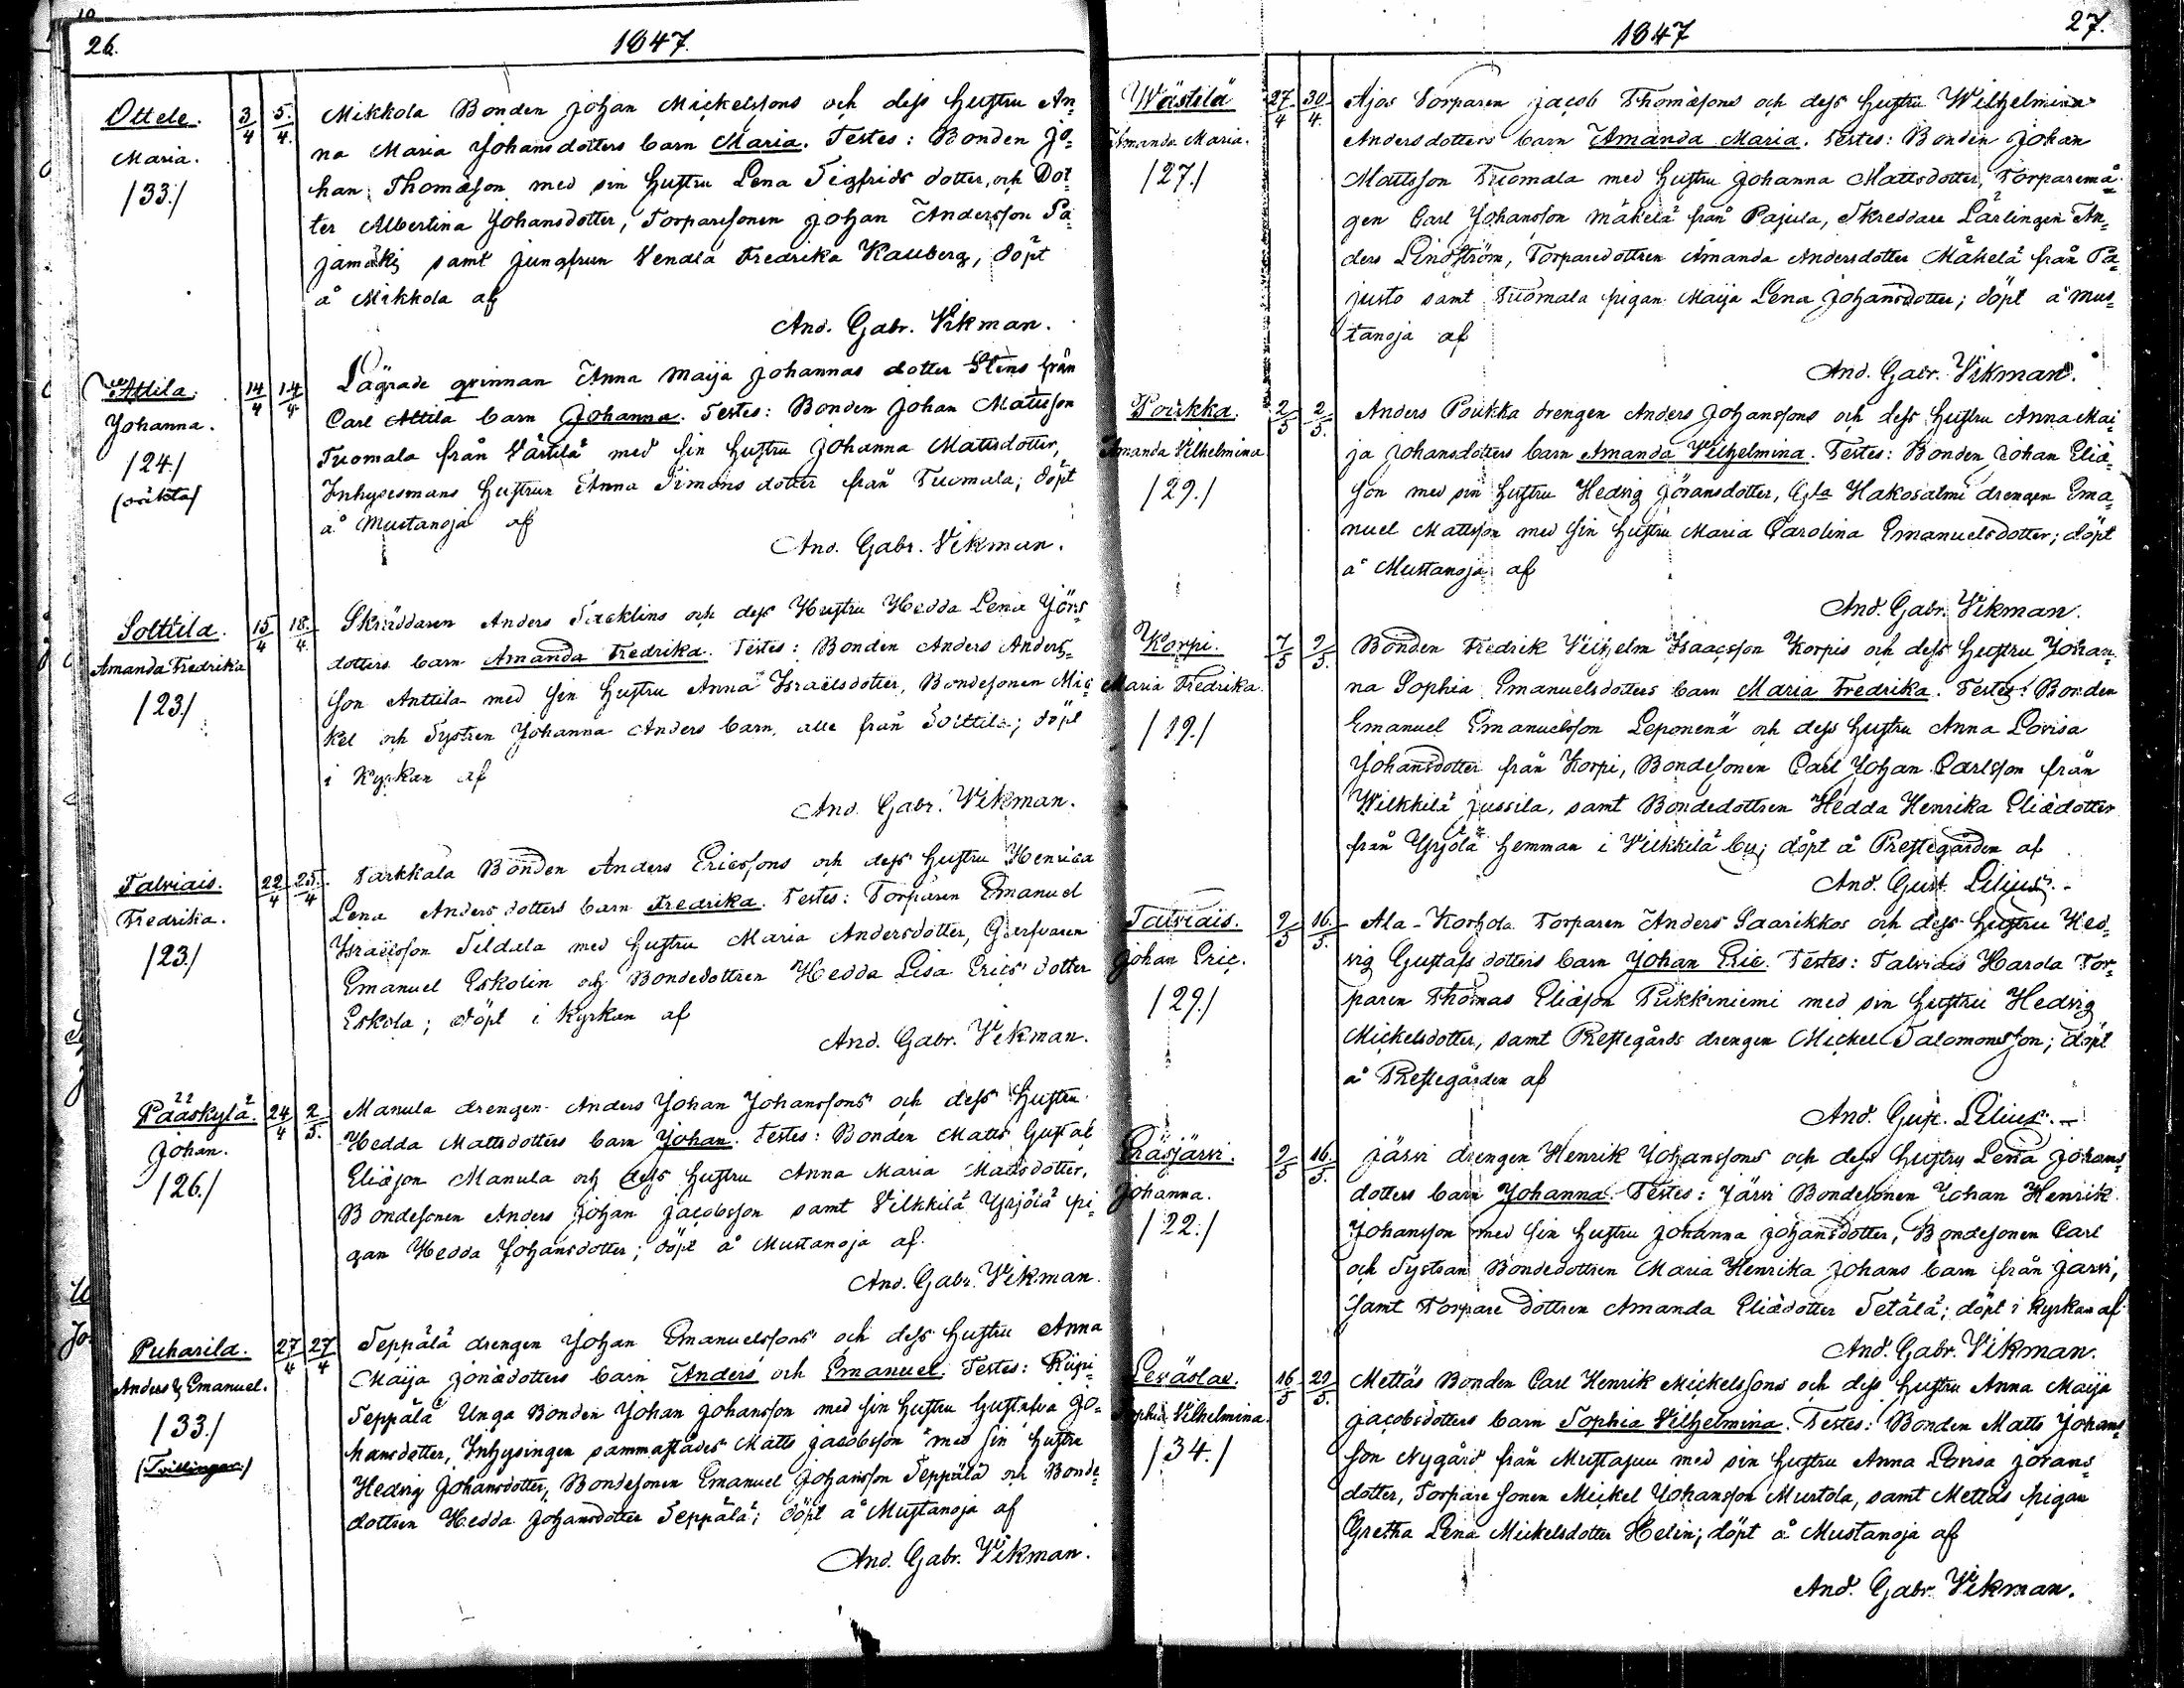 26.
1847.
Ottele.
Maria.
/33./
3/4
5./4.
Mikkola Bonden Johan Mickelssons och dess hustru An=
na Maria Johansdotters barn Maria. Testes: Bonden Jo=
han Thomæson med sin hustru Lena Sigfrids dotter, och Dot=
ter Albertina Johansdotter, Torparesonen Johan Andersson Pa=
jamäki samt Jungfrun Vendla Fredrika Kauberg, döpt
å Mikkola af
And. Gabr. Vikman.
Attila.
Johanna.
/24./
(oäkta)
14/4
14/4
Lägrade qvinnan Anna Maija Johannas dotter Stens från
Carl Attila barn Johanna. Testes: Bonden Johan Matsson
Tuomala från Västilä med sin hustru Johanna Mattsdotter,
Inhysesmans hustrun Anna Simons dotter från Tuomala; döpt
å Mustanoja af
And. Gabr. Vikman.
Solttila.
Amanda Fredrika
/23/
15/4
18./4.
Skräddaren Anders Sacklins och dess Hustru Hedda Lena Jörs
dotters barn Amanda Fredrika. Testes: Bonden Anders Anders=
son Anttila med sin hustru Anna Israelsdotter, Bondesonen Mic
kel och Systren Johanna Anders barn, alla från Solttila; döpt
i Kyrkan af
And. Gabr. Vikman.
Talviais.
Fredrika.
/23/
22/4
25./4
Parkkala Bonden Anders Ericssons och dess hustru Henrica
Lena Anders dotters barn Fredrika. Testes: Torparen Emanuel
Israelsson Sildala med hustru Maria Andersdotter, Gerfvaren
Emanuel Eskolin och Bondedottren Hedda Lisa Erics dotter
Eskola; döpt i Kyrkan af
And. Gabr. Vikman.
Pääskylä.
Johan.
/26./
24/4
2/5.
Manula drengen Anders Johan Johanssons och dess hustru
Hedda Mattsdotters barn Johan. Testes: Bonden Matts Gustaf
Eliæson Manula och dess hustru Anna Maria Mattsdotter,
Bondesonen Anders Johan Jacobsson samt Vilkkilä Yrjölä pi=
gan Hedda Johansdotter; döpt å Mustanoja af
And. Gabr. Vikman.
Puharila.
Anders & Emanuel.
/33./
(Tvillingar.)
27/4
27/4
Seppälä drengen Johan Emanuelssons och dess hustru Anna
Maija Jonædotters barn Anders och Emanuel. Testes:
Seppälä Unga Bonden Johan Johansson med sin hustru Gustafva Jo=
hansdotter, Inhysingen sammastädes Matts Jacobsson med sin hustru
Hedvig Johansdotter, Bondesonen Emanuel Johansson Seppälä och Bonde=
dottren Hedda Johansdotter Seppälä; döpt å Mustanoja af
And. Gabr. Vikman.
1847
27.
Wästilä
Amanda Maria.
/27./
27/4
30/4.
Ajos Torparen Jacob Thomæsons och dess hustru Wilhelmina
Andersdotters barn Amanda Maria. Testes: Bonden Johan
Mattsson Tuomala med hustru Johanna Mattsdotter, Torparemå=
gen Carl Johansson Mäkelä från Pajula, Skreddare Lärlingen An=
ders Lindström, Torparedottren Amanda Andersdotter Mäkelä från Pa=
justo samt Tuomala pigan Maija Lena Johansdotter; döpt å Mus=
tanoja af
And. Gabr. Vikman.
Poukka.
Amanda Vilhelmina
/29./
2/5
2/5.
Anders Poukka drengen Anders Johanssons och dess hustru Anna Mai=
ja Johansdotters barn Amanda Vilhelmina. Testes: Bonden Johan Eliæ=
son med sin hustru Hedvig Göransdotter, Gla Hakosalmi drengen Ema=
nuel Mattsson med sin hustru Maria Carolina Emanuelsdotter; döpt
å Mustanoja af
And. Gabr. Vikman.
Korpi.
Maria Fredrika.
/19./
7/5
9/5.
Bonden Fredrik Vilhelm Isaacsson Korpis och dess hustru Johan=
na Sophia Emanuelsdotters barn Maria Fredrika. Testes: Bonden
Emanuel Emanuelsson Leponenä och dess hustru Anna Lovisa
Johansdotter från Korpi, Bondesonen Carl Johan Carlsson från
Wilkkilä Jussila, samt Bondedottren Hedda Henrika Eliædotter
från Yrjölä hemman i Vilkkilä by; döpt å Prestegården af
And. Gust. Lilius.
Talviais.
Johan Eric.
/29./
9/5
16./5.
Ala-Korhola Torparen Anders Saarikkos och dess hustru Hed=
vig Gustafs dotters barn Johan Eric. Testes: Talviais Harola Tor=
paren Thomas Eliæson Pukkiniemi med sin hustru Hedvig
Mickelsdotter, samt Prestegårds drengen Mickel Salomonsson; döpt
å Prestegården af
And. Gust. Lilius.
Präsjärvi.
Johanna.
/22./
9/5
16./5.
Järvi drengen Henrik Johanssons och dess hustru Lena Johans=
dotters barn Johanna. Testes: Järvi Bondesonen Johan Henrik
Johansson med sin hustru Johanna Johansdotter, Bondesonen Carl
och Systran Bondedottren Maria Henrika Johans barn från Järvi,
samt Torpare dottren Amanda Eliædotter Setälä; döpt i Kyrkan af
And. Gabr. Vikman.
Leväslax.
Sophia Vilhelmina.
/34./
16/5
29/5.
Mettäs Bonden Carl Henrik Mickelssons och dess hustru Anna Maija
Jacobsdotters barn Sophia Vilhelmina. Testes: Bonden Matts Johans=
son Nygård från Mustajuu med sin hustru Anna Lovisa Jörans=
dotter, Torpare sonen Mickel Johansson Murtola, samt Mettäs pigan
Gretha Lena Mickelsdotter Helin; döpt å Mustanoja af
And. Gabr. Vikman.